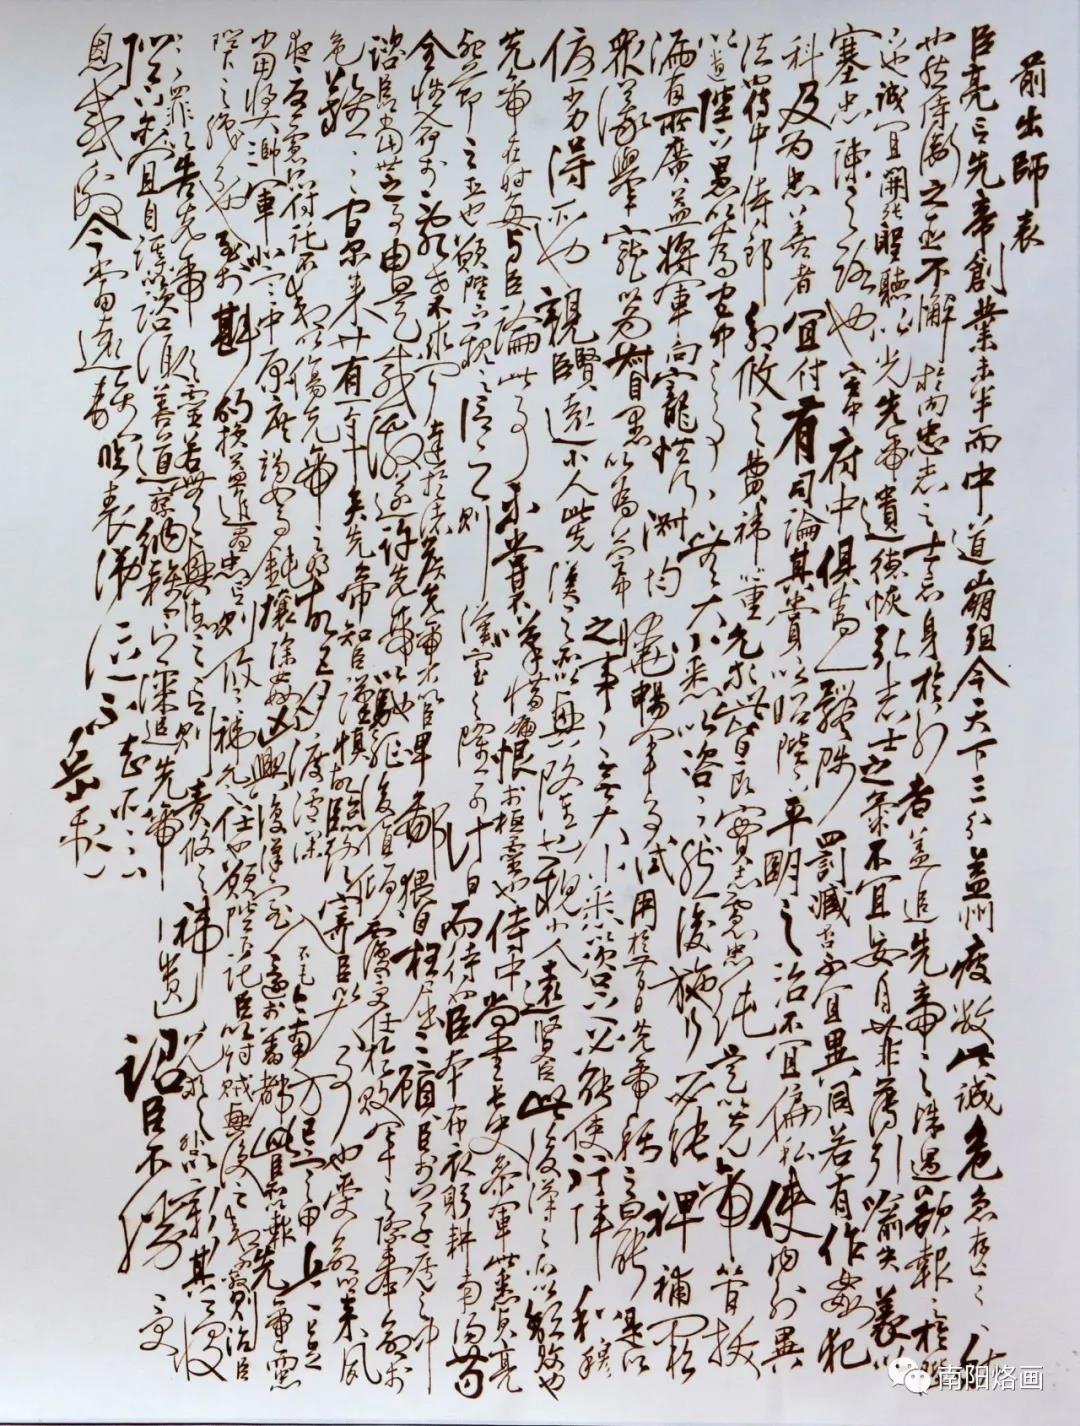 前出師表
臣亮言先帝創業未半而中道崩殂今天下三分益州疲敝此誠危急存亡之秋
也然侍衛之臣不懈於內忠志之士忘身於外者蓋追先帝之殊遇欲報之於陛
下也誠宜開張聖聽以光先帝遺德恢弘志士之氣不宜妄自菲薄引喻失義以
塞忠諫之路也宮中府中俱為一體陟罰臧否不宜異同若有作姦犯
科及為忠善者宜付有司論其刑賞以昭陛下平明之治不宜偏私使內外異
法也侍中侍郎郭攸之費禕董允等此皆良實志慮忠純是以先帝簡拔
以遺陛下愚以為宮中之事事無大小悉以咨之然後施行必能裨補闕
漏有所廣益將軍向寵性行淑均曉暢軍事試用於昔日先帝稱之曰能是以
眾議舉寵以為督愚以為營中之事事無大小悉以咨之必能使行陣和穆
優劣得所也親賢臣遠小人此先漢之所以興隆也親小人遠賢臣此後漢之所以傾敗也
先帝在時每與臣論此事未嘗不嘆惜痛恨於桓靈也侍中尚書長史參軍此悉貞亮
死節之臣也願陛下親之信之則漢室之隆可計日而待也臣本布衣躬耕南陽苟
全性命於亂世不求聞達於諸侯先帝不以臣卑鄙猥自枉屈三顧臣於草廬之中
諮臣以當世之事由是感激遂許先帝以馳驅後值傾覆受任於敗軍之際奉命於
危難之間爾來廿有一年矣先帝知臣謹慎故臨崩寄臣以大事也受命以來夙
夜憂慮恐付託不效以傷先帝之明故五月渡瀘深入不毛今南方已定甲兵已足
當獎帥三軍北定中原庶竭駑鈍攘除姦凶興復漢室還於舊都此臣所以報先帝而忠
陛下之職分也至於斟酌損益進盡忠言則攸之禕允之任也願陛下託臣以討賊興復之效不效則治臣
之罪以告先帝之靈若無興德之言則責攸之禕允之咎以彰其慢
陛下亦宜自謀以諮諏善道察納雅言深追先帝遺詔臣不勝受
恩感激今當遠離臨表涕泣不知所云
岳飛
南阳烙画